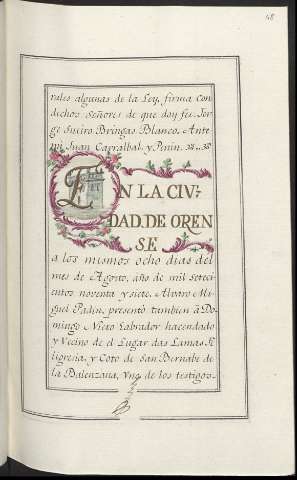 48
rales algunas de la Ley, firma con
dichos Señores de que doy fee. Jor-
ge Sueiro Bringas Blanco. Ante
mi Juan Carralbal y Penin.
EN LA CIV-
DAD DE OREN
SE
a los mismos ocho dias del
mes de Agosto, año de mil Setec-
ientos noventa y siete. Alvaro Mi-
guel Padin, presentò tambien à Do-
mingo Nieto Labrador hacendado
y Vecino de el Lugar das Lamas Fe-
ligresia, y Coto de San Bernabe de
la Balenzana, Uno de los testigos